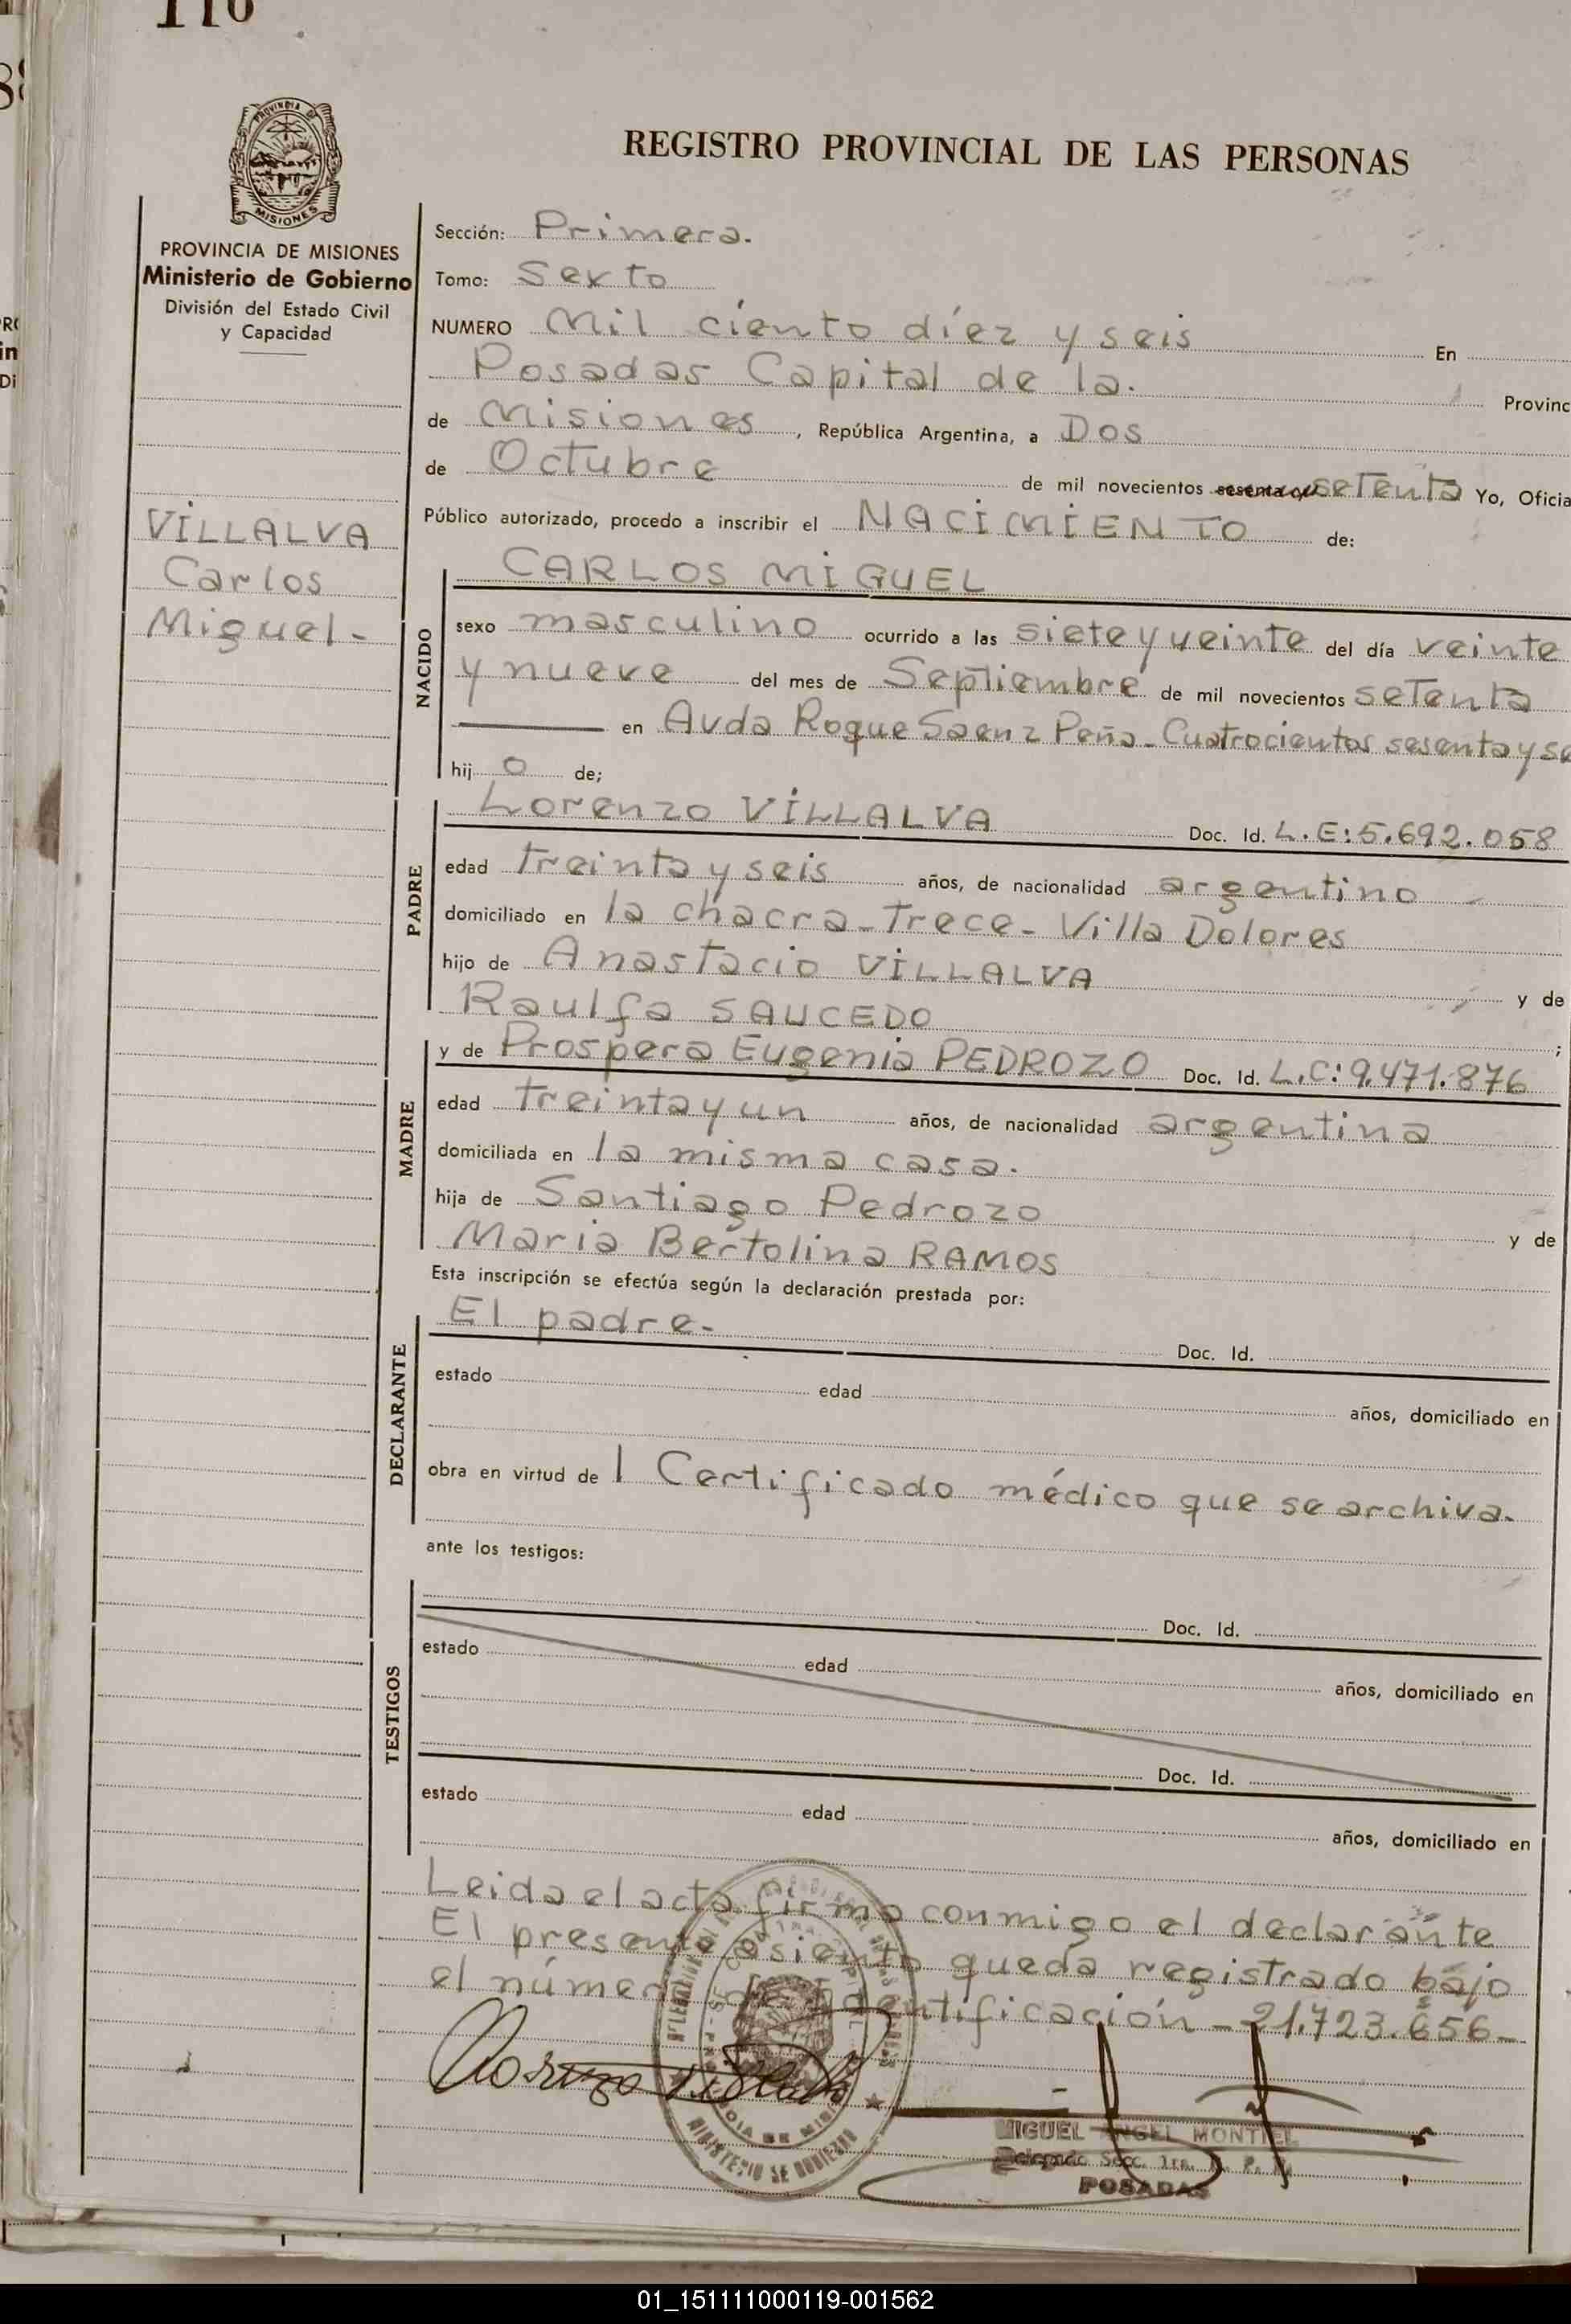 116
REGISTRO PROVINCIAL DE LAS PERSONAS
PROVINCIA DE MISIONES
Ministerio de Gobierno
División del Estado Civil
y Capacidad
VILLALVA
Carlos
Miguel-
Sección: Primera.
Tomo: Sexto
NUMERO Mil ciento díez y seis En
Posadas Capital de la. Provinc
de Misiones, República Argentina, a Dos
de Octubre de mil novecientos setenta Yo, Oficia
Público autorizado, procedo a inscribir el NACIMIENTO de:
NACIDO
CARLOS MIGUEL
sexo masculino ocurrido a las siete y veinte del día veinte
y nueve del mes de Septiembre de mil novecientos setenta
en Avda Roque Saenz Peña - Cuatrocientos sesenta y se
hij o de;
PADRE
Lorenzo VILLALVA Doc. Id. L.E: 5.692.058
edad treinta y seis años, de nacionalidad argentino
domiciliado en la chacra - Trece - Villa Dolores
hijo de Anastacio VILLALVA y de
Raulfa SAUCEDO ;
MADRE
y de Prospera Eugenia PEDROZO Doc. Id. L.C: 9.471.876
edad treinta y un años, de nacionalidad argentina
domiciliada en la misma casa.
hija de Santiago Pedrozo y de
Maria Bertolina RAMOS
Esta inscripción se efectúa según la declaración prestada por:
DECLARANTE
El padre- Doc. Id.
estado edad años, domiciliado en
obra en virtud de 1 Certificado médico que se archiva.
ante los testigos:
TESTIGOS
Doc. Id.
estado edad años, domiciliado en
Doc. Id.
estado edad años, domiciliado en
Leida el acta firma conmigo el declarante
El presente asiento queda registrado bajo
el número de identificación - 21.723.656-
Lorenzo Villalva
MIGUEL ANGEL MONTIEL
Delegado Secc. 1ra. R. P. P.
POSADAS
MINISTERIO DE GOBIERNO
01_151111000119-001562